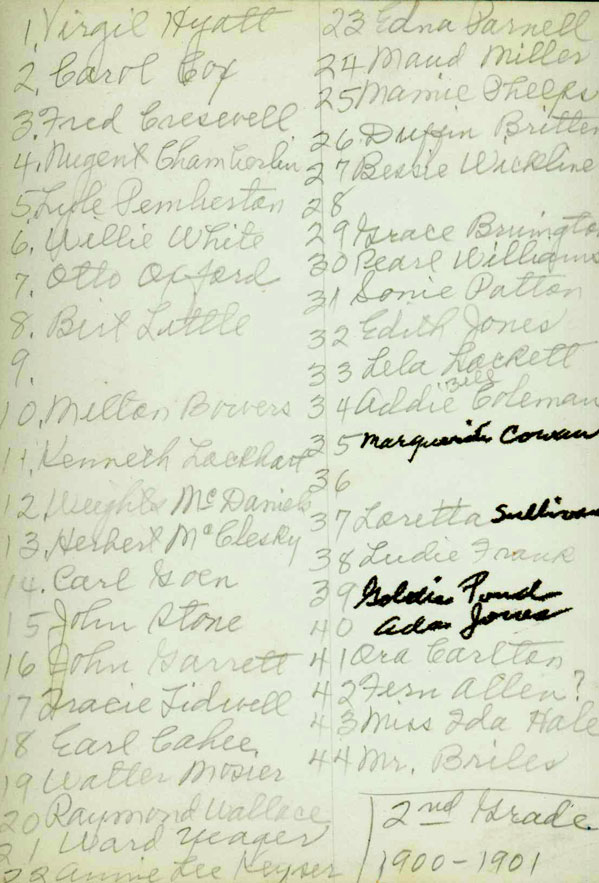 1. Virgil Hyatt
2. Carol Cox
3. Fred Creswell
4. Nugent Chamberlin
5. Lyle Pemberton
6. Willie White
7. Otto Oxford
8. Birt Little
9.
10. Milton Bowers
11. Kenneth Lockhart
12. McDaniels
13. Herbert McClesky
14. Carl Goen
15 John Stone
16 John Garrett
17 Gracie Tidwell
18 Earl Cahee
19 Walter Mosier
20 Raymond Wallace
21 Ward Yeager
22 Annie Lee Keyser
23 Edna Parnell
24 Maud Miller
25 Mamie Phelps
26 Duffin Britten
27 Bessie Wickline
28
29 Grace Bruington
30 Pearl Williams
31 Sonie Patton
32 Edith Jones
33 Lela Lockett
34 Addie "Bill" Coleman
35 Marguerite Cowan
36
37 Loretta Sullivan
38 Ludie Frank
39 Goldie Pond
40 Ada Jones
41 Ora Carlton
42 Fern Allen?
43 Miss Ida Hale
44 Mr. Briles
2nd Grade
1900-1901